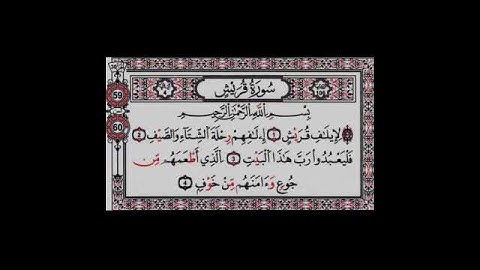 سُورَةُ قُرَيْشٍ
بِسْمِ اللَّهِ الرَّحْمَٰنِ الرَّحِيمِ
لِإِيلَافِ قُرَيْشٍ ١ إِۦلَافِهِمْ رِحْلَةَ الشِّتَاءِ وَالصَّيْفِ ٢
فَلْيَعْبُدُوا رَبَّ هَٰذَا الْبَيْتِ ٣ الَّذِي أَطْعَمَهُم مِّن
جُوعٍ وَءَامَنَهُم مِّنْ خَوْفٍ ٤
59
60